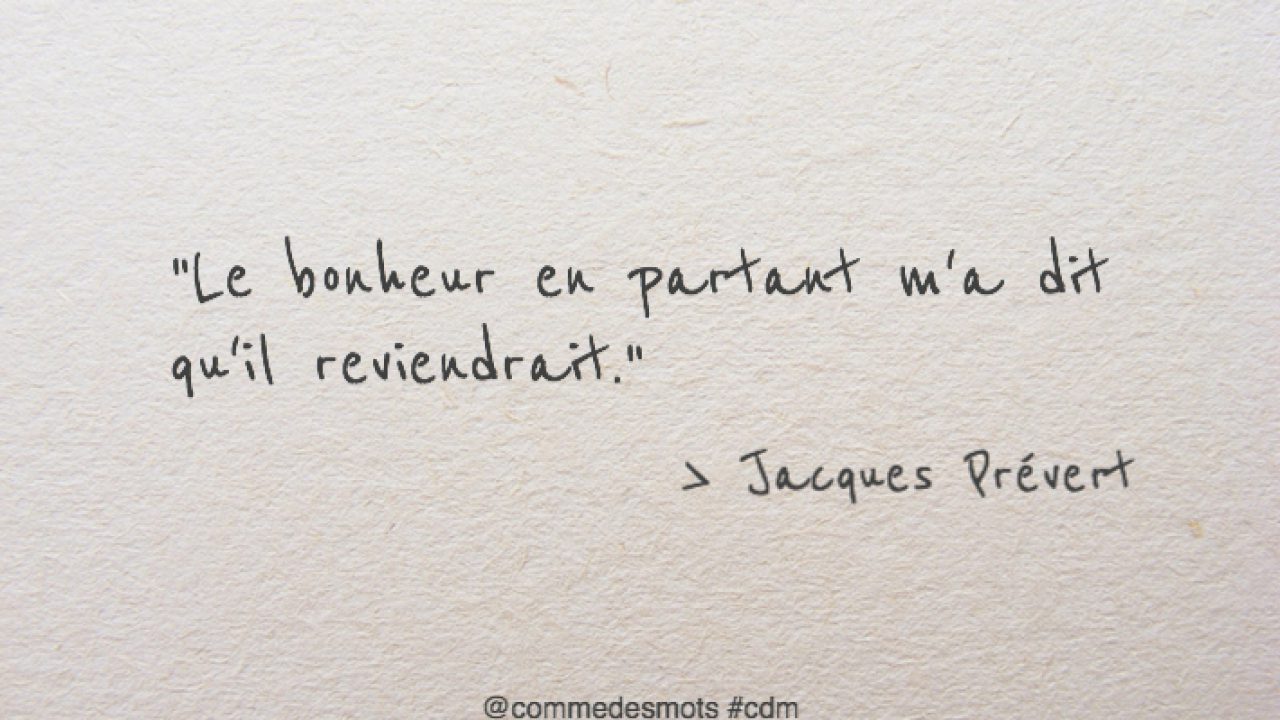 "Le bonheur en partant m'a dit
qu'il reviendrait."
> Jacques Prévert
@commedesmots #cdm